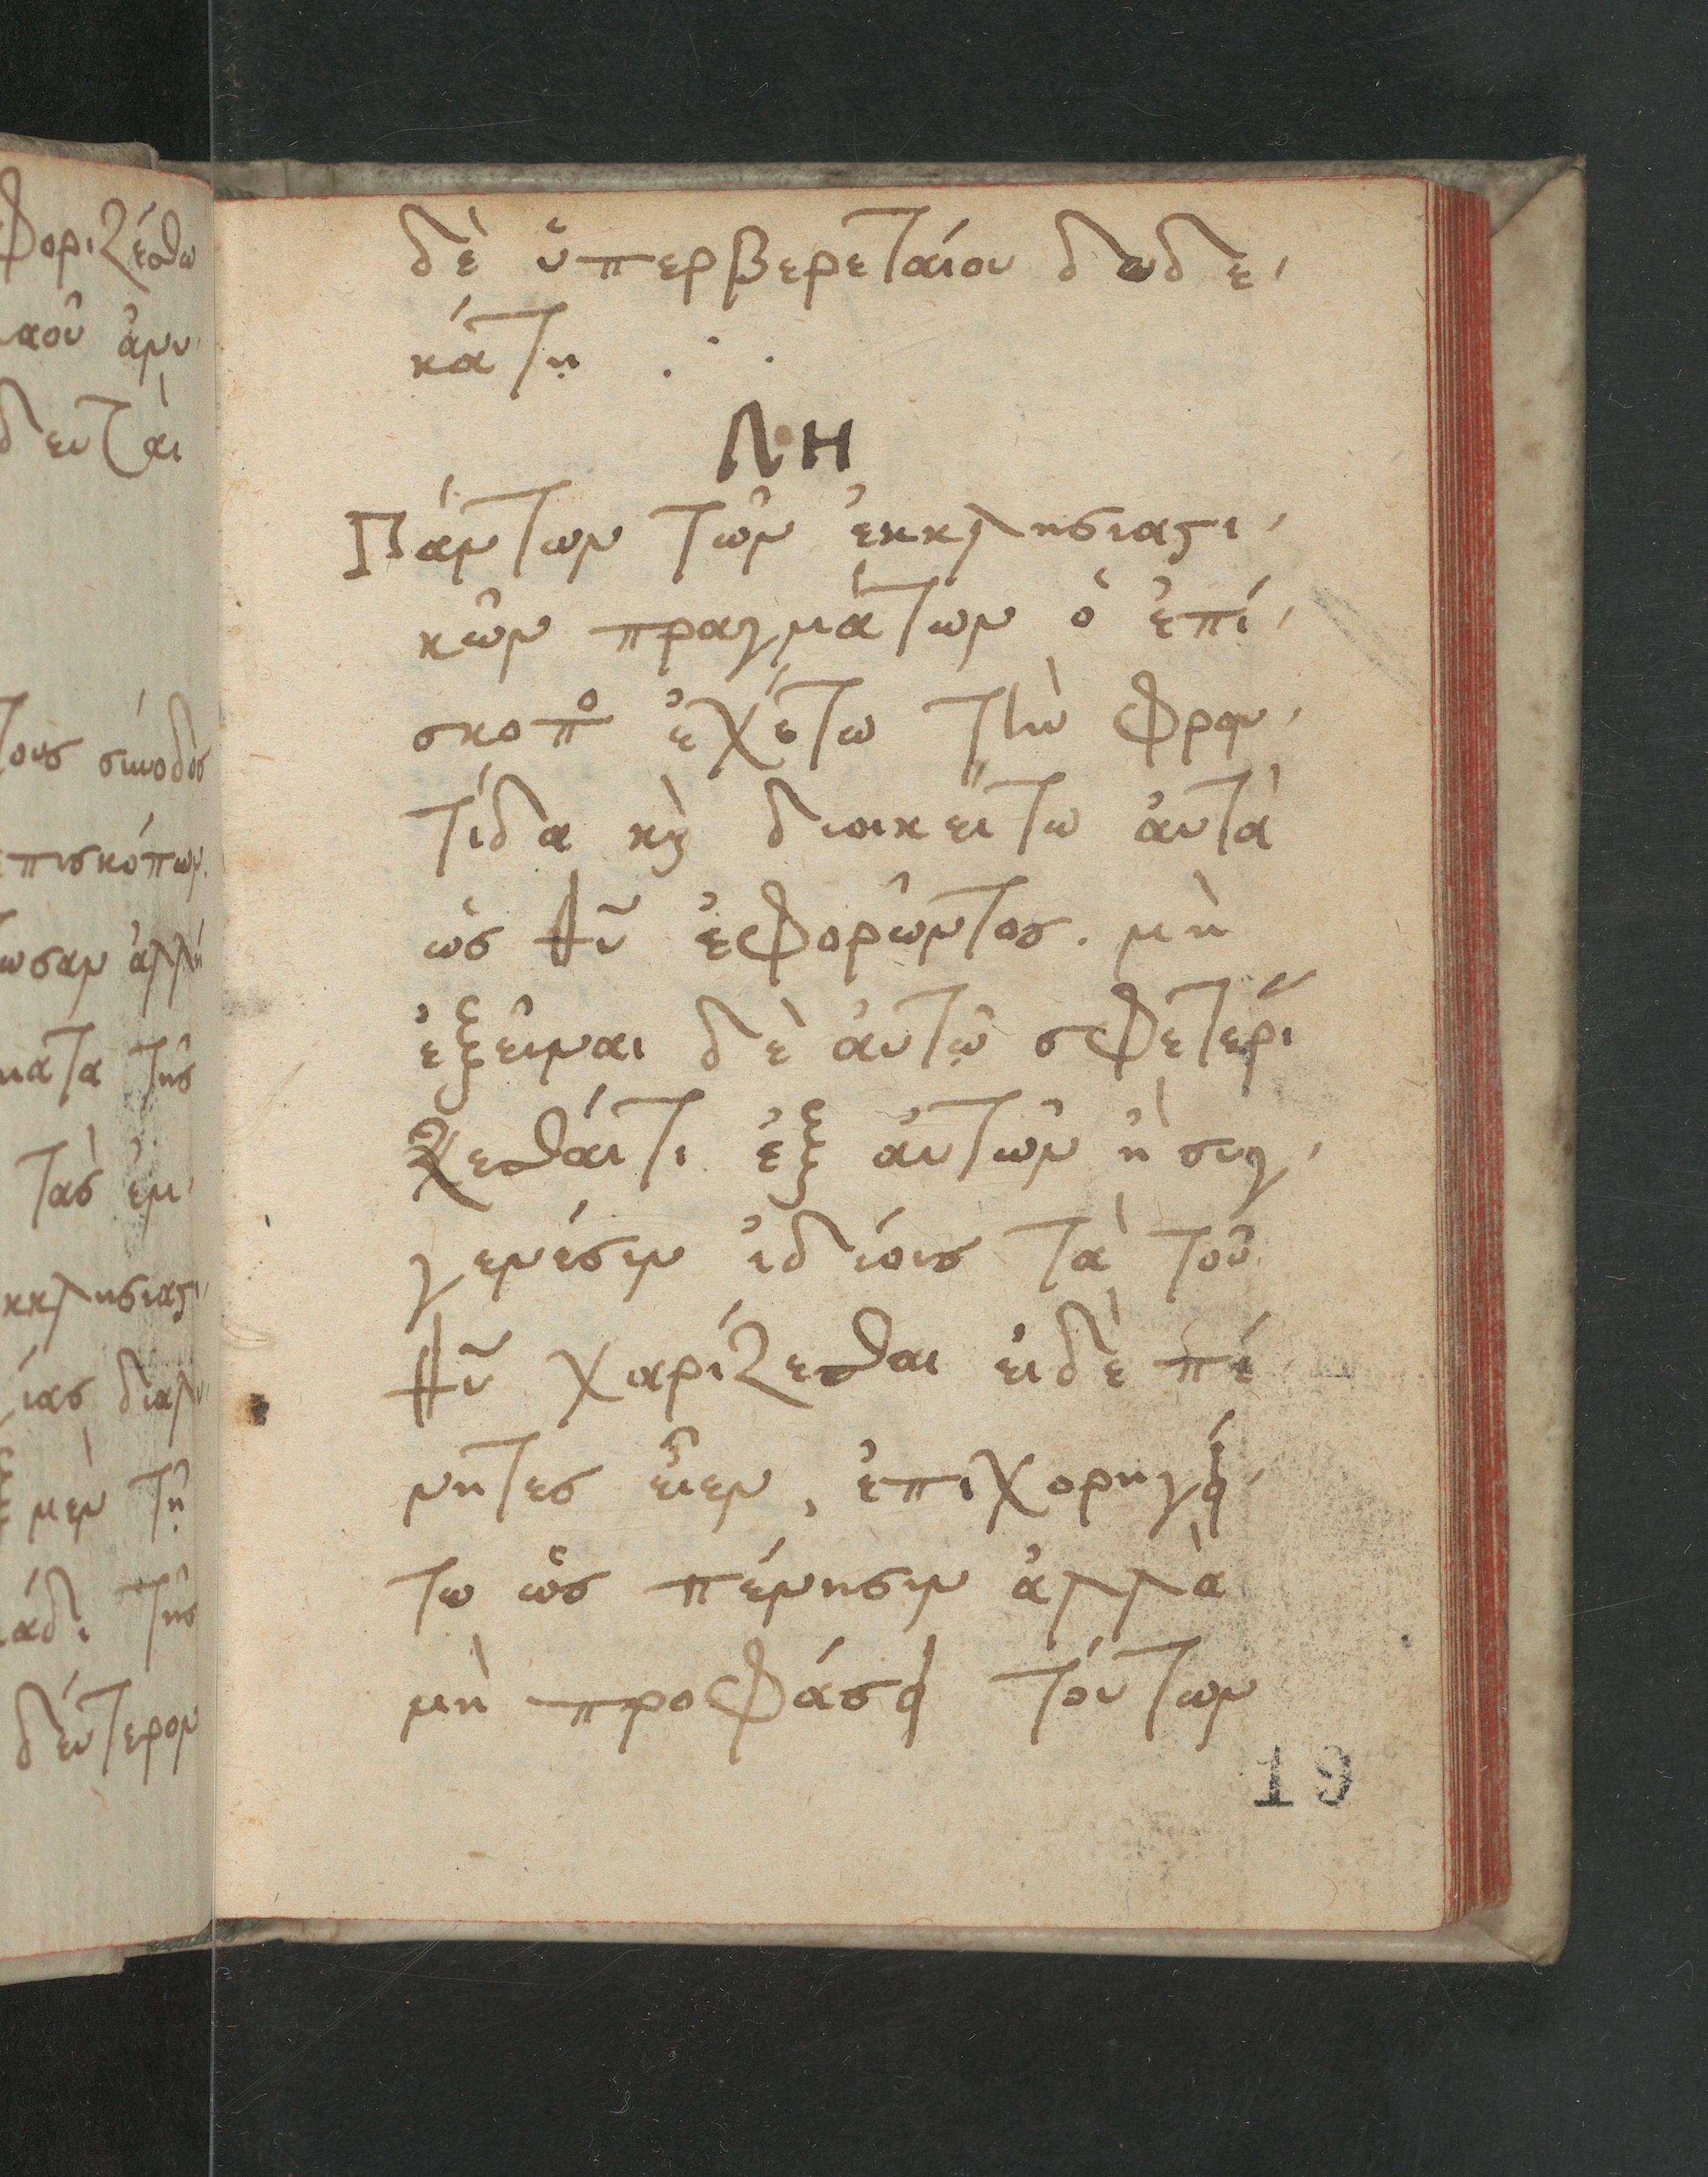 φοριζέσθω
αοῦ ἀμυ
δευταὶ
τους σύνοδος
ἐπισκόπων.
ωσαν ἀλλή
ματα τῆς
τὰς ἐμ
κκλησιαστι
ίας διαλυ
μὲν τῇ
άδι τῆς
δεύτερον
δὲ ὑπερβερεταίου δωδε-
κάτῃ ∴
ΛΗ
Πάντων τῶν ἐκκλησιαστι-
κῶν πραγμάτων ὁ ἐπί-
σκοπο ἐχέτω τὴν φρον-
τίδα κὶ διοικείτω ἀυτὰ
ὡς θυ̃ ἐφορῶντος. μὴ
ἐξεῖναι δὲ ἀυτῷ σφετερί
ζεσθαίτι ἐξ ἀυτῶν ἢ συγ-
γενέσιν ἰδίοις τὰ τοῦ
θυ̃ χαρίζεσθαι ἐιδὲ πέ
νητες εἶεν, ἐπιχορηγεί-
τω ὡς πένησιν ἀλλὰ
μὴ προφάσει τούτων
19